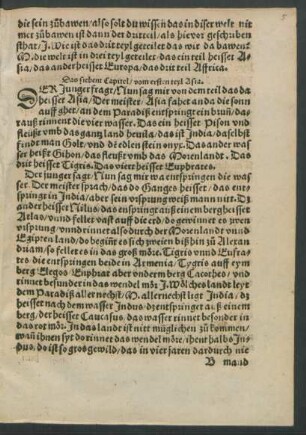 die sein zůbawen/also solt du wissen das in diser welt nit
mer zů bawen ist dann der drit teil/als hievor geschriben
sthat/J. Wie ist das drit teyl geteilet das wir da bawen?
M. die welt ist in drei teyl geteilet/das ein teil heisset A-
sia/das ander heisset Europa/das drit teil Affrica.
Das siebent Capitel/vom ersten teyl Asia.
DER Junger fragt/Nun sag mir von dem teil das da
heisset Asia/Der meister/Asia fahet an da die sonn
auff geht/in dem Paradiß entspringt ein bruñ/da-
rauß rinnent die vier wasser. Das ein heisset Pison/vnd
fleüßt vmb das gantz land heuila/das ist India/daselbst
findt man Golt/vnd edelstein onyx. Das ander was
ser heißt Gihon/das fleußt vmb das Morenlandt. Das
drit heisset Tigris. Das viert heisset Euphrates.
Der junger sagt: Nun sag mir wa entspringen die was-
ser. Der meister sprach/das do Ganges heisset/das ents
springt in India/aber sein vrsprung weiß mann nit: Dz
ander heisset Nilus/das entspringt auß einem berg heisset
Atlas/vnnd fellet vast auff die erd do gewinnet es zwen
vrsprung/vnnd rinnet also durch der Morenlandt vnnd
Egipten land/do begiñt es sich zweien biß hin zů Alexan
driam/so fellet es in das groß mör. Tigris vnnd Eufra-
tes/die entspringen beide in Armenia/Tygris auff eym
berg Elegos/Euphrat aber vnderm berg Cacothes/vnd
rinnet besunder in das wendel mör. J. Wölches landt leyt
dem Paradiß aller nechst/M. aller nechst ligt India/ dz
heisset nach dem wasser Indus: dz entspringet auß einem
berg/der heisset Caucasus/das wasser rinnet besonder in
das rot mör: In das landt ist nitt müglichen zů kommen/
wañ ihnen syt do rinnet das wendel möre/ihent halb o In-
dus/do ist so gros gewild/das in vier jaren dardurch nie
B mand